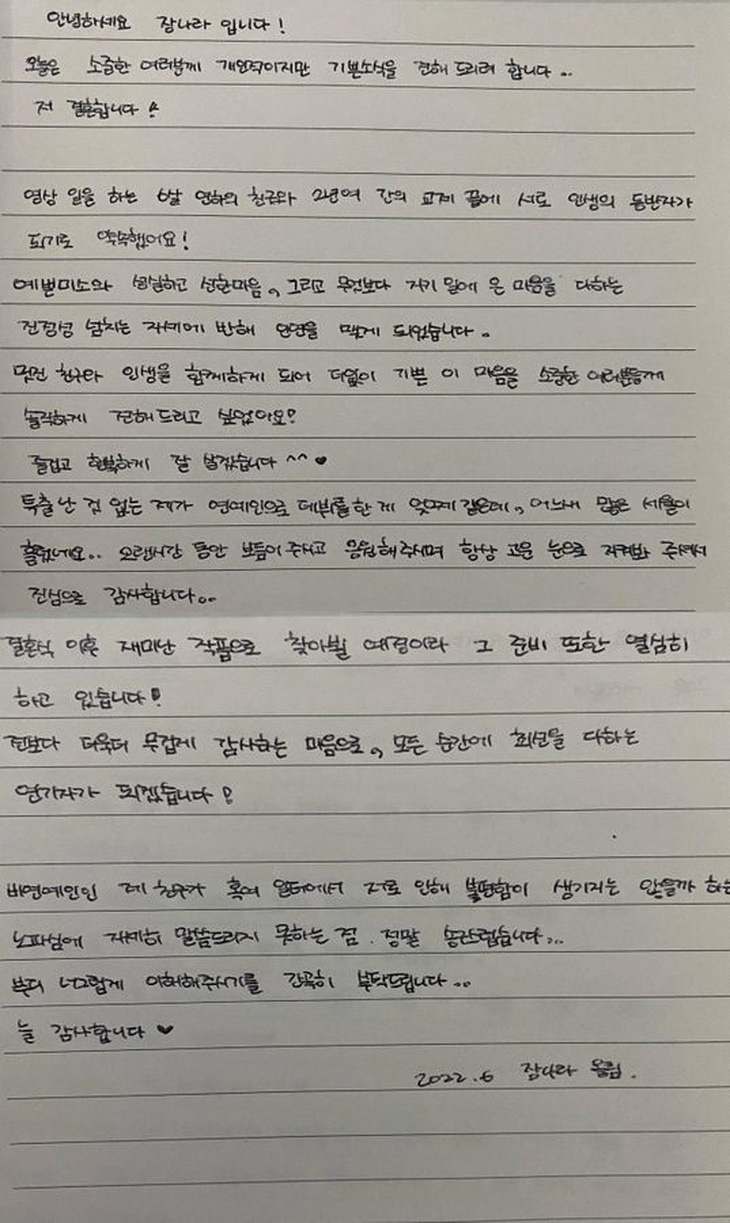 안녕하세요 장나라 입니다!
오늘은 소중한 여러분께 개인적이지만 기쁜소식을 전해 드리려 합니다..
저 결혼합니다!
영상 일을 하는 6살 연하의 친구와 2년여 간의 교제 끝에 서로 인생의 동반자가
되기로 약속했어요!
예쁜미소와 성실하고 선한마음, 그리고 무엇보다 자기 일에 온 마음을 다하는
진정성 넘치는 자세에 반해 인연을 맺게 되었습니다.
멋진 친구와 인생을 함께하게 되어 더없이 기쁜 이 마음을 소중한 여러분들께
솔직하게 전해드리고 싶었어요!
즐겁고 행복하게 잘 살겠습니다 ^^ ♥
특출난 것 없는 제가 연예인으로 데뷔를 한 게 엊그제 같은데, 어느새 많은 세월이
흘렀네요.. 오랜시간 동안 보듬어주시고 응원해주시며 항상 고운 눈으로 지켜봐 주셔서
진심으로 감사합니다..
결혼식 이후 재미난 작품으로 찾아뵐 예정이라 그 준비 또한 열심히
하고 있습니다!
전보다 더욱더 무겁게 감사하는 마음으로, 모든 순간에 최선을 다하는
연기자가 되겠습니다!
비연예인인 제 친구가 혹여 일터에서 저로 인해 불편함이 생기지는 않을까 하는
노파심에 자세히 말씀드리지 못하는 점. 정말 송구스럽습니다...
부디 너그럽게 이해해주시기를 간곡히 부탁드립니다..
늘 감사합니다 ♥
2022.6 장나라 올림.